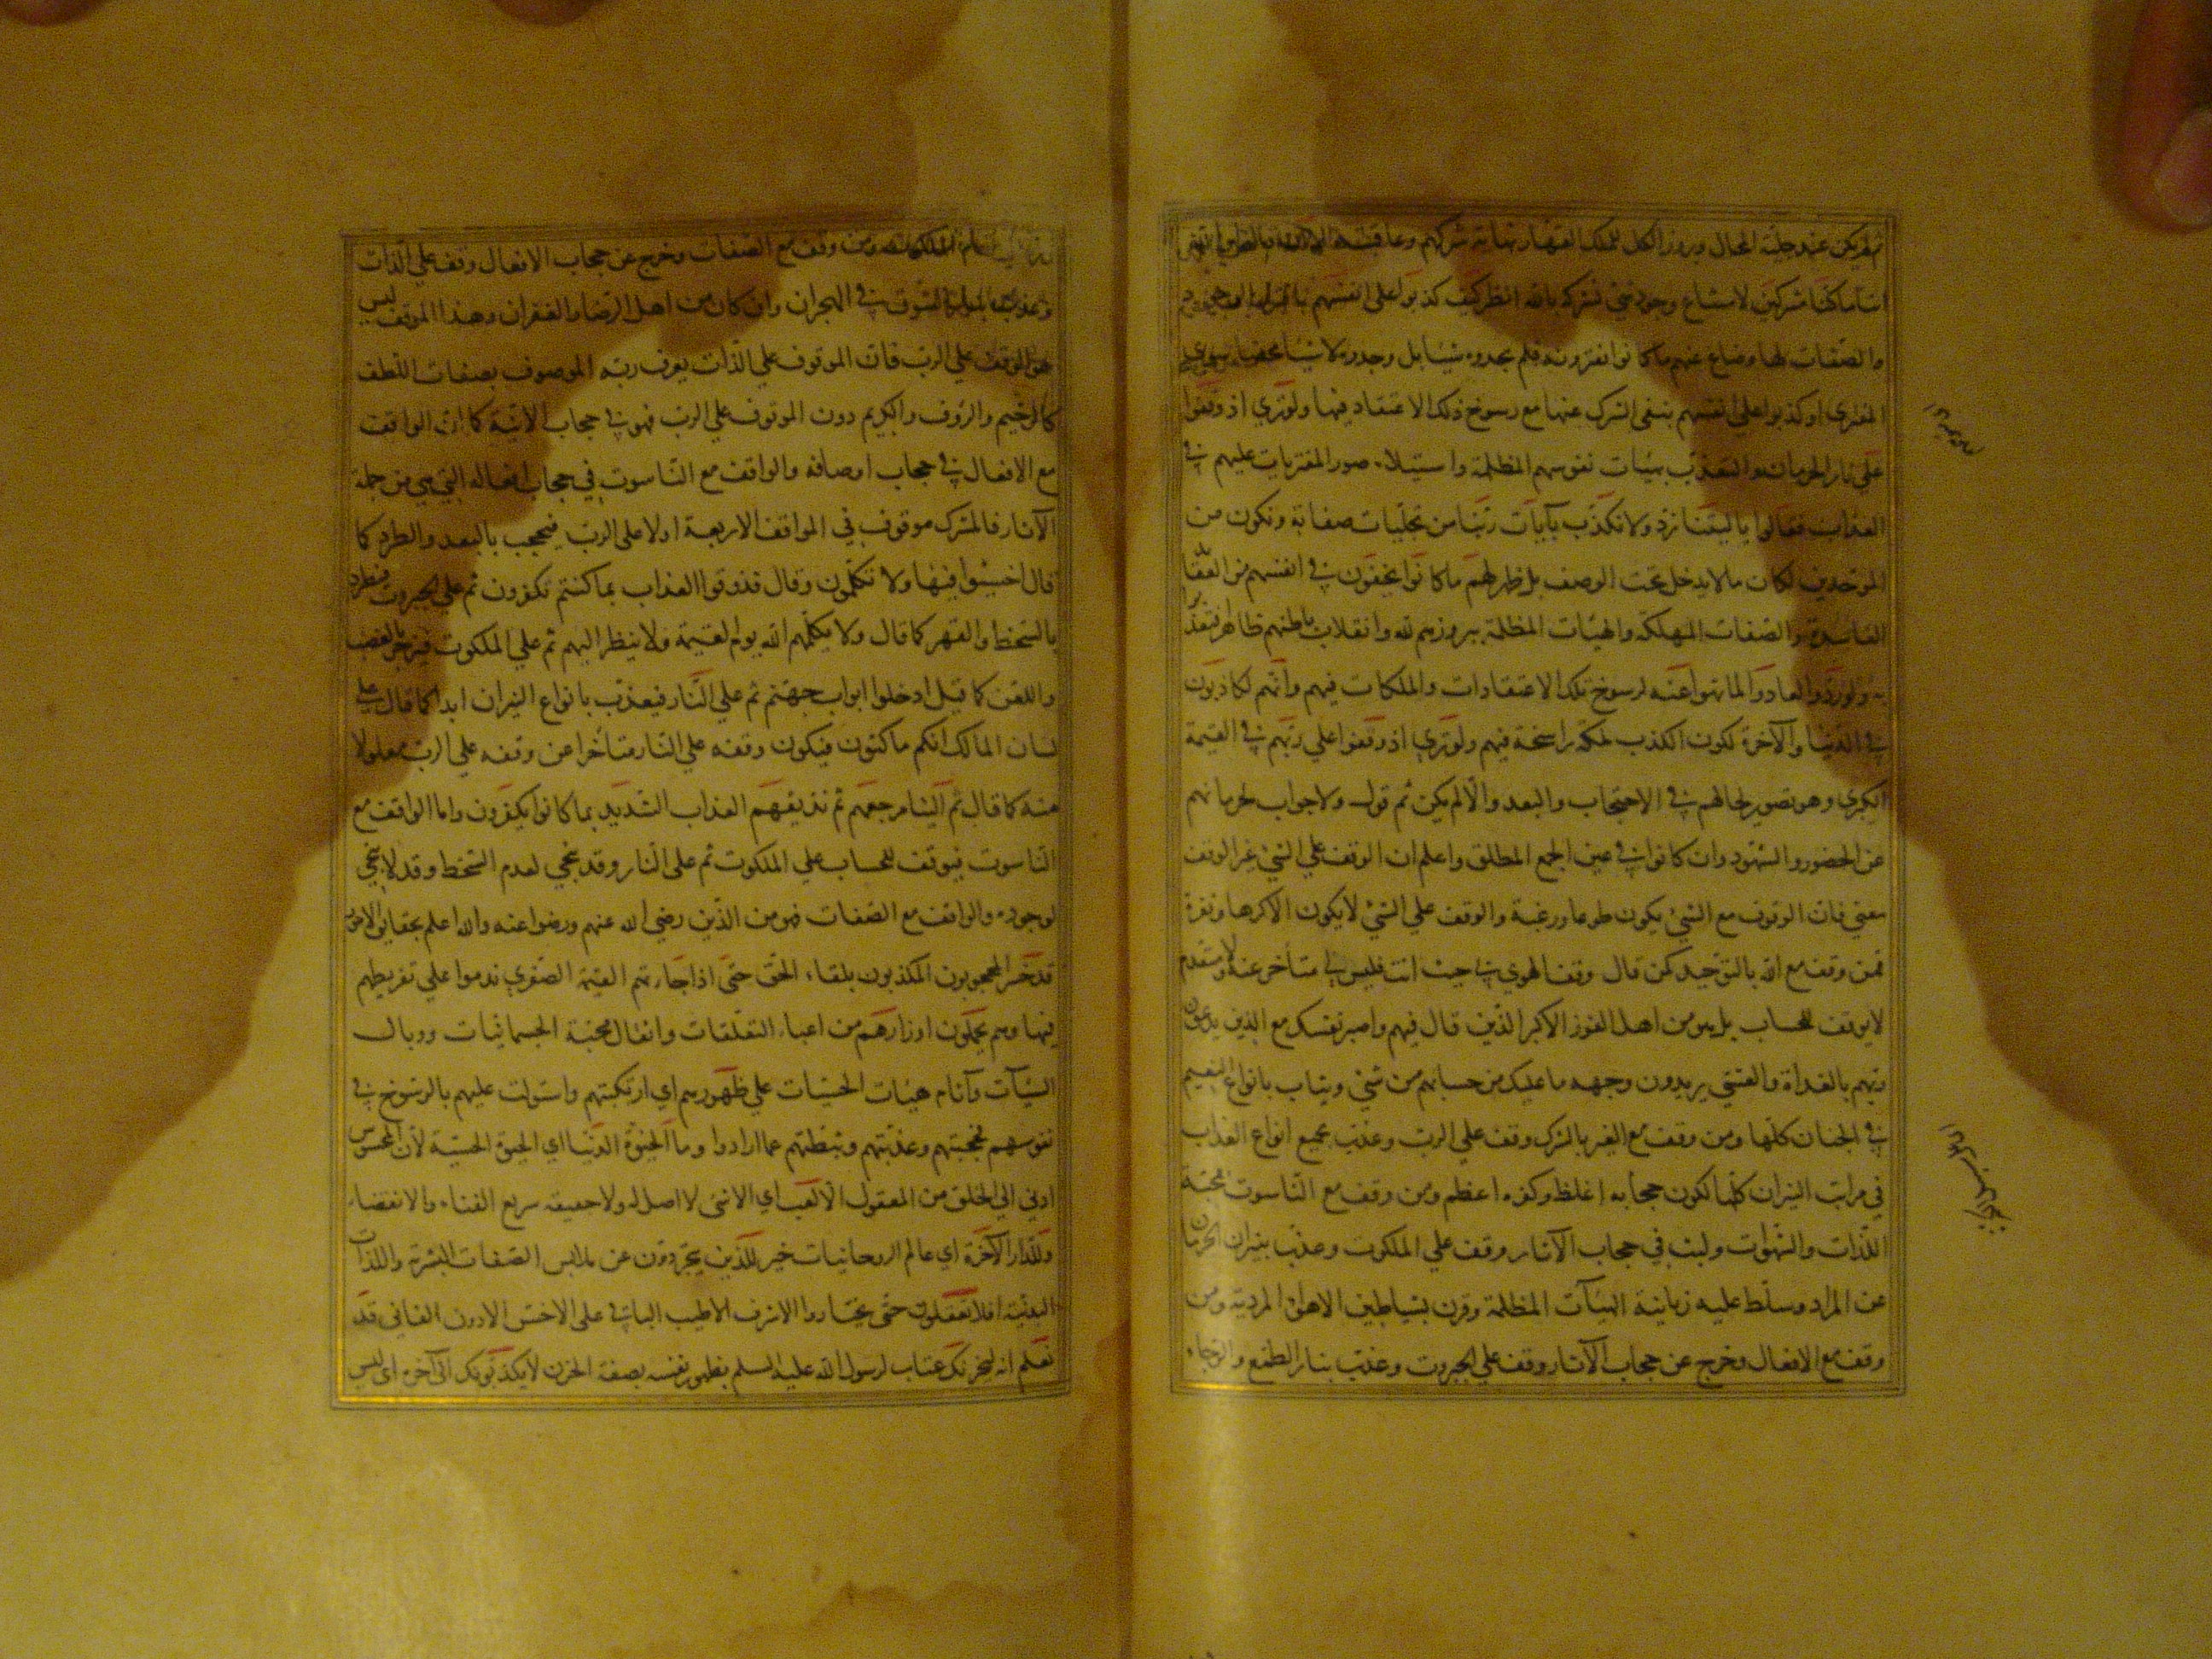 ثم لم يكن عند جلية الحال وبروز الكل للملك القهار نهاية شركهم وعاقبته الا ان قالوا والله ربنا
ما كنا مشركين لامتناع وجود شئ نشركه بالله انظر كيف كذبوا على انفسهم
والصفات لها وضاع عنهم ما كانوا يفترونه فلم يجدوه شيئا بل وجدوه لا شيئا محضا
المفترى او كذبوا على انفسهم بنفى الشرك عنها مع رسوخ ذلك الاعتقاد فيها ولو ترى اذ وقفوا
على نار الحرمان والتعذب بهيئات نفوسهم المظلمة واستيلاء صور المفتريات عليهم في
العذاب فقالوا يا ليتنا نرد ولا نكذب بآيات ربنا من تجليات صفاته ونكون من
الموحدين لكان ما لا يدخل تحت الوصف بل ظهر لهم ما كانوا يخفون في انفسهم من العقائد
الفاسدة والصفات المهلكة والهيئات المظلمة ببروزهم لله وانقلاب باطنهم ظاهرا فتعذبوا
به ولو ردوا لعادوا لما نهوا عنه لرسوخ تلك الاعتقادات والملكات فيهم وانهم لكاذبون
في الدنيا والآخرة لكون الكذب ملكة راسخة فيهم ولو ترى اذ وقفوا على ربهم في القيمة
الكبرى وهو تصوير لحالهم في الاحتجاب والبعد والا لم يكن ثم قول ولا جواب لحرمانهم
عن الحضور والشهود وان كانوا في عين الجمع المطلق واعلم ان الوقف على الشئ غير الوقف
معه فان الوقوف مع الشئ يكون طوعا ورغبة والوقف على الشئ لا يكون الا كرها ونفرة
فمن وقف مع الله بالتوحيد كمن قال وقف الهوى بي حيث انت فليس لي متأخر عنه ولا متقدم
لا يوقف للحساب بل يهو من اهل الفوز الاكبر الذين قال فيهم واصبر نفسك مع الذين يدعون
ربهم بالغداة والعشي يريدون وجهه ما عليك من حسابهم من شئ ويثاب بانواع النعيم
في الجنان كلها ومن وقف مع الغير بالشرك وقف على الرب وعذب بجميع انواع العذاب
في مراتب النيران كلها لكون حجابه اغلظ وكفره اعظم ومن وقف مع الناسوت بمحبة
اللذات والشهوات ولبث في حجاب الآثار وقف على الملكوت وعذب بنيران الحرمان
عن المراد وسلط عليه زبانية الهيئات المظلمة وقرن بشياطين الاهواء المردية ومن
وقف مع الافعال وخرج عن حجاب الآثار وقف على الجبروت وعذب بنار الطمع والرجاء
ورد الى مقام الملكوت ومن وقف مع الصفات وخرج عن حجاب الافعال وقف على الذات
وعذب بنار الشوق في الهجران وان كان من اهل الرضا والغفران وهذا الموقف ليس
هو الوقف على الرب فان الموقوف على الذات يعرف ربه الموصوف بصفات اللطف
كالرحيم والرؤف والكريم دون الموقوف على الرب فهو في حجاب الانية كما ان الواقف
مع الافعال في حجاب اوصافه والواقف مع الناسوت في حجاب افعاله التي هي من جملة
الآثار فالمشرك موقوف في المواقف الاربعة اولا على الرب فيحجب بالبعد والطرد كما
قال اخسئوا فيها ولا تكلمون وقال فذوقوا العذاب بما كنتم تكفرون ثم على الجبروت فيطرد
بالسخط والقهر كما قال ولا يكلمهم الله يوم القيمة ولا ينظر اليهم ثم على الملكوت فيزجر بالغضب
واللعن كما قيل ادخلوا ابواب جهنم ثم على النار فيعذب بانواع النيران ابدا كما قال على
لسان المالك انكم ماكثون فيكون وقفه على النار متأخرا عن وقفه على الرب معلولا
منه كما قال ثم الينا مرجعهم ثم نذيقهم العذاب الشديد بما كانوا يكفرون واما الواقف مع
الناسوت فيوقف للحساب على الملكوت ثم على النار وقد ينجي لعدم السخط وقد لا ينجي
لوجوده والواقف مع الصفات فهو من الذين رضي الله عنهم ورضوا عنه والله اعلم بحقايق الامور
قد خسر المحجوبون المكذبون بلقاء الحق حتى اذا جاءتهم القيمة الصغرى ندموا على تفريطهم
فيها وهم يحملون اوزارهم من اعباء التعلقات واثقال محبة الجسمانيات ووبال
السيآت وآثام هيئات الحسيات على ظهورهم اي ارتكبتهم واستولت عليهم بالرسوخ في
نفوسهم فحجبتهم وعذبتهم وثبطتهم عما ارادوا وما الحيوة الدنيا اي الحيوة الحسية لان المحسوس
ادني الى الخلق من المعقول الا لعب اي الا شئ لا اصل له ولا حقيقة سريع الفناء والانقضاء
وللدار الآخرة اي عالم الروحانيات خير للذين يتجردون عن ملابس الصفات البشرية واللذات
البدنية افلا تعقلون حتى يختاروا الاشرف الاطيب الباقي على الاخس الادون الفاني قد
نعلم انه ليحزنك عتاب لرسول الله عليه السلم بظهور نفسه بصفة الحزن لا يكذبونك الى آخره اي ليس